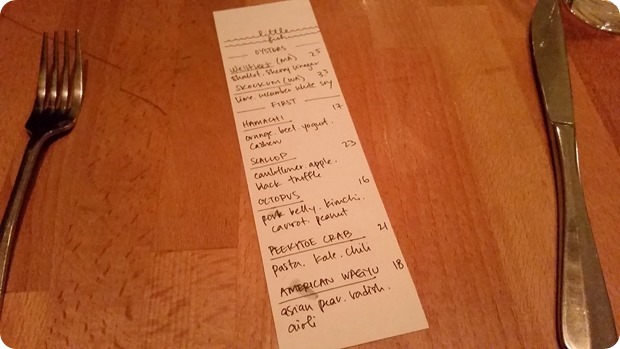 little
fish
OYSTERS
WELLFLEET (MA) 25
shallot. sherry vinegar
SKOOKUM (WA) 33
lime. cucumber. white soy
FIRST
HAMACHI 17
orange. beet. yogurt.
cashew
SCALLOP 23
cauliflower. apple.
black truffle
OCTOPUS 16
pork belly. kimchi.
carrot. peanut
PEEKYTOE CRAB 21
pasta. kale. chili
AMERICAN WAGYU 18
asian pear. radish.
aioli